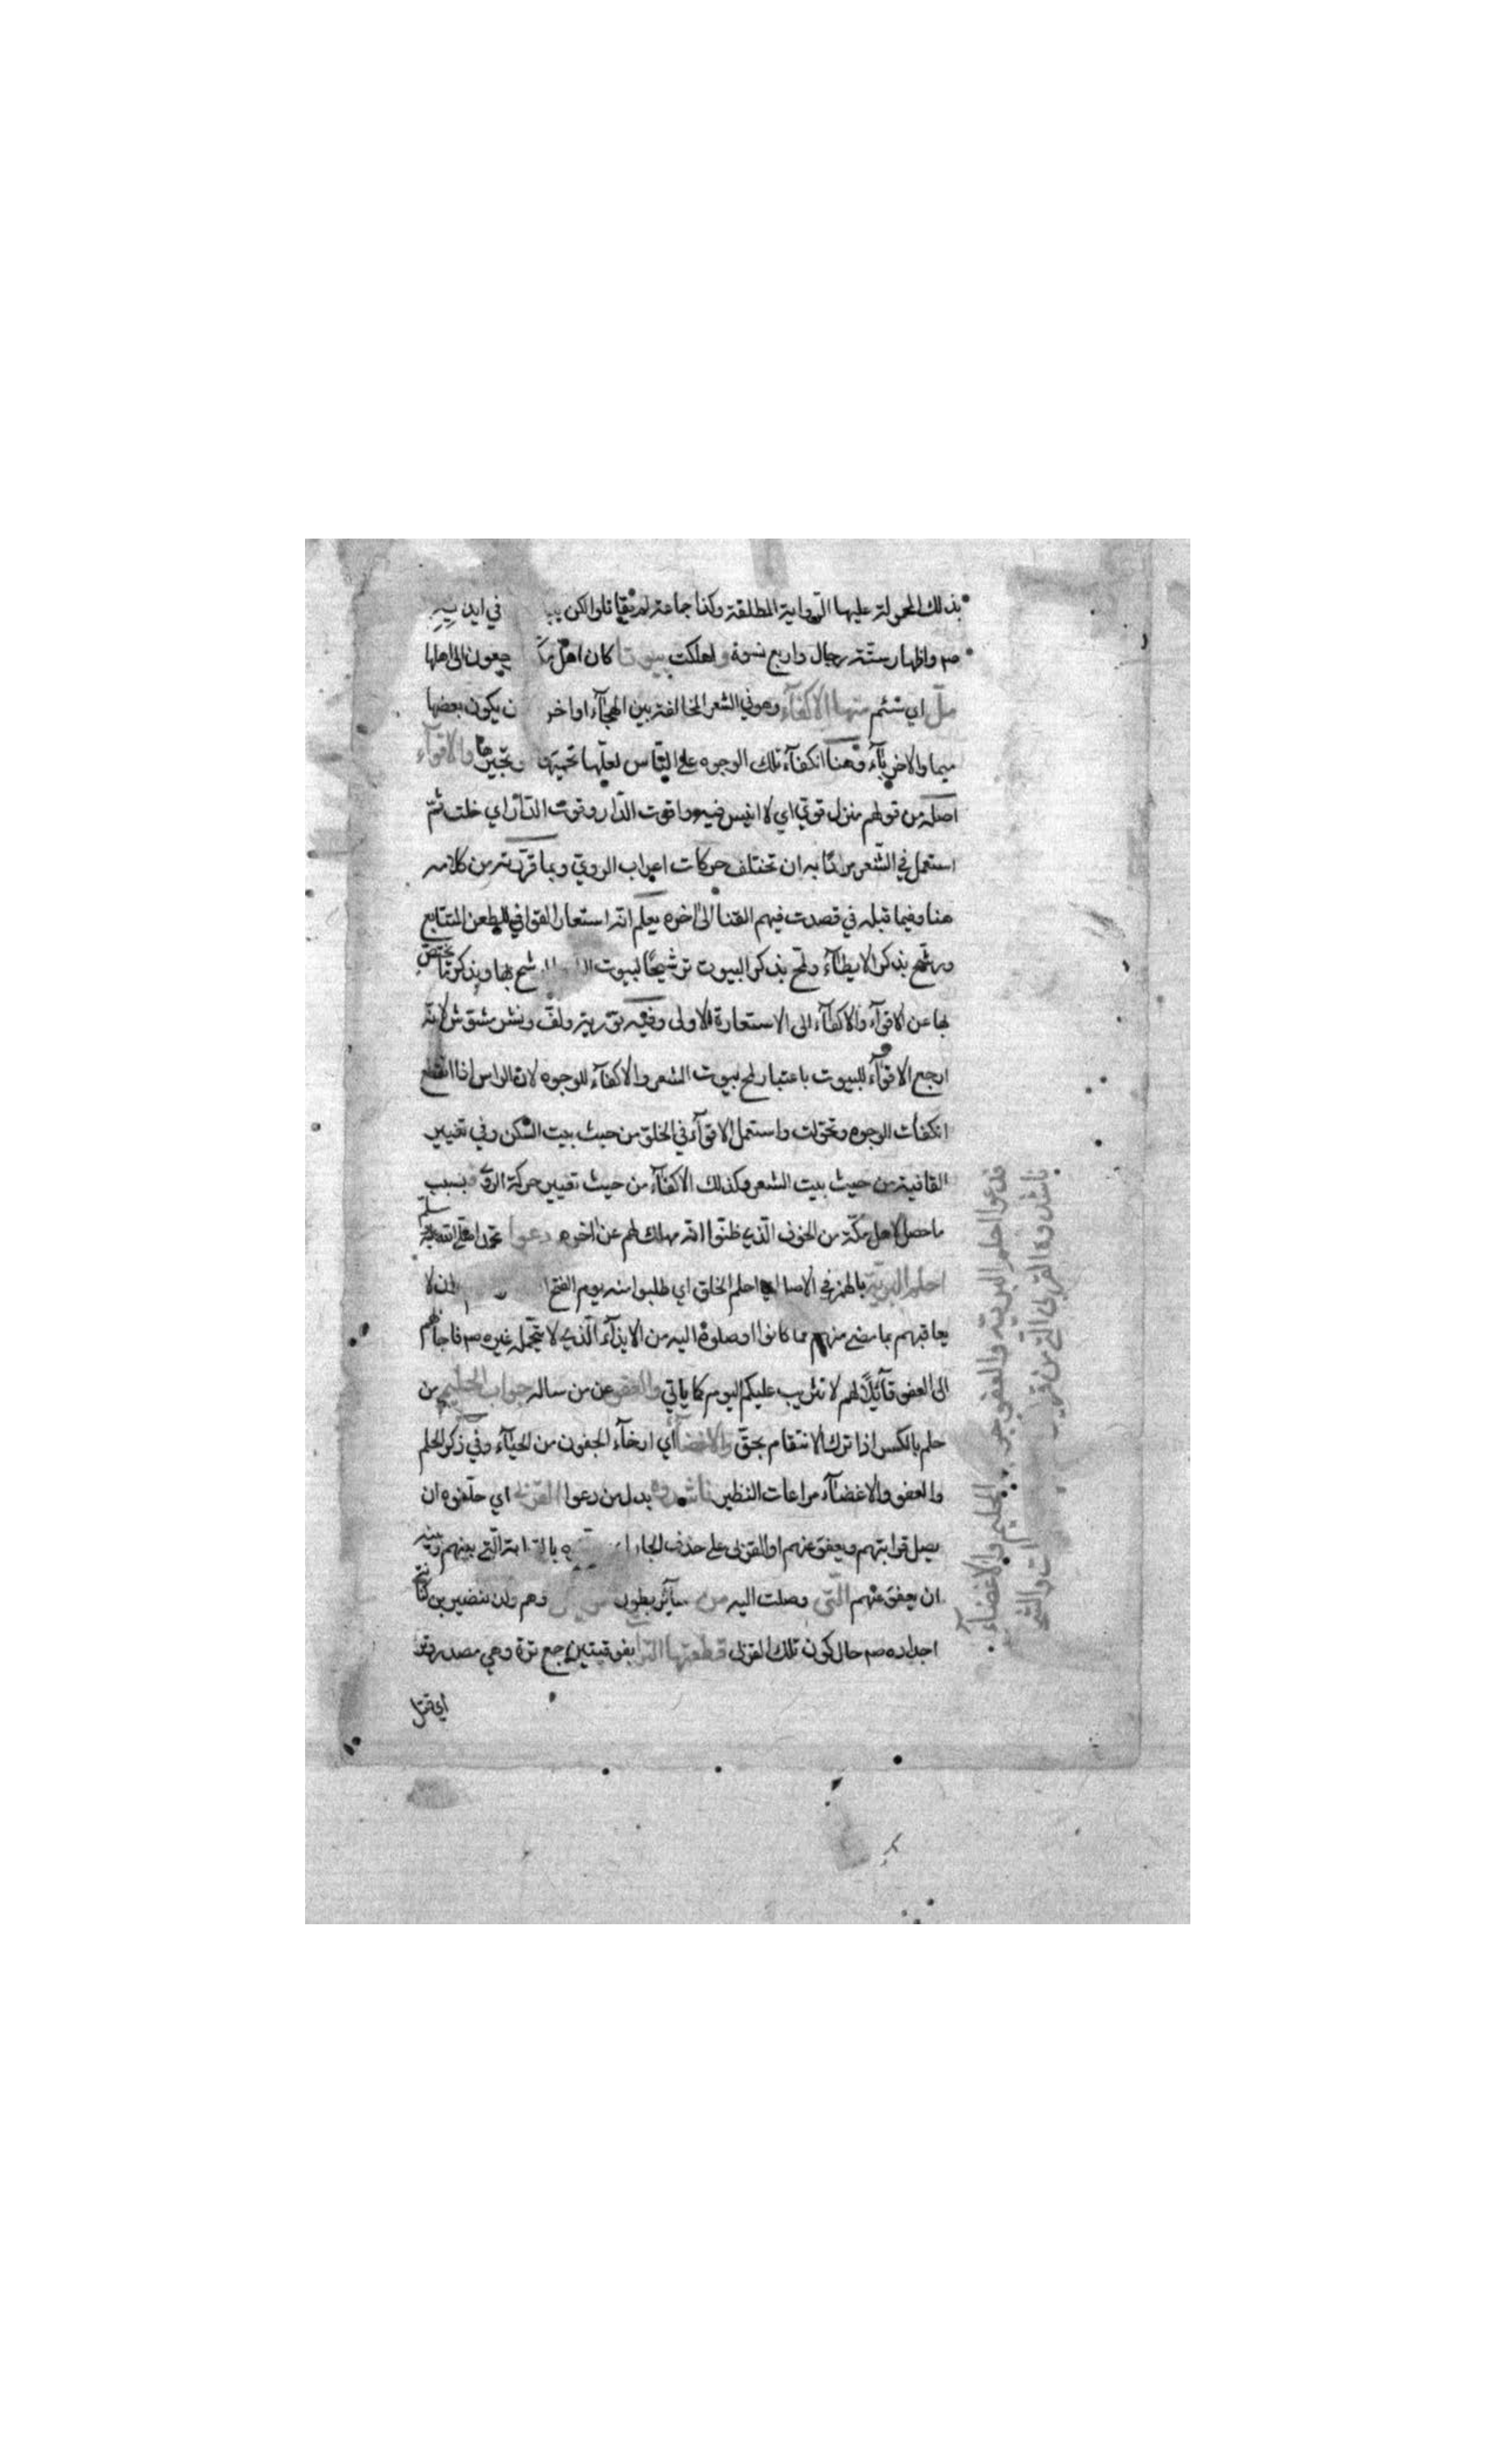 بذلك المحمولة عليها الرواية المطلقة وكذا جماعة لم يقاتلوا لكن في ايد
صم واظهار ستة رجال واربع نسوة واهلكت بيوتا كان اهل يرجعون الى اهلها
ملّ اي سئم منها الاكفآء وهو في الشعر المخالفة بين الهجآء اواخر يكون بعضها
ميما والاخر بآء وهنا انكفآء تلك الوجوه على الناس والاقوآء
اصله من قولهم منزل قوي اي لا انيس فيه واقوت الدار وقوت الدار اي خلت ثم
استعمل في الشعر مرادا به ان تختلف حركات اعراب الروي وبما قررته من كلامه
هنا وفيما قبله في قصدت فيهم القنا الى اخره يعلم انه استعار القوافي للطعن المتتابع
ورشح بذكر الايطآء ولمح بذكر البيوت ترشيحا لبيوت رشح بها وبذكر ما يختص
بها من الاقوآء والاكفآء الى الاستعارة الاولى وفيه تورية ولف ونشر مشوش لانه
ارجع الاقوآء للبيوت باعتبار لمح بيوت الشعر والاكفآء للوجوه لان الراس اذا انقطع
انكفأت الوجوه وتحولت واستعمل الاقوآء في الخلو من حيث بيت السكن وفي تغيير
القافية من حيث بيت الشعر وكذلك الاكفآء من حيث تغيير حركة الروي بسبب
ما حصل لاهل مكة من الخوف الذي ظنوا انه مهلك لهم عن اخرهم دعوا محمدا صلى الله عليه وسلم
احلم البرية بالهمز في الاصل اي احلم الخلق اي طلبوا منه يوم الفتح ان لا
يعاقبهم بما مضى منهم مما كانوا اوصلوه اليه من الايذآء الذي لا يتحمله غيره صم فاجابهم
الى العفو قآئلا لهم لا تثريب عليكم اليوم كما ياتي والعفو عن من ساله جواب الحليم من
حلم بالكسر اذا ترك الانتقام بحق والاغضآء اي ارخآء الجفون من الحيآء وفي ذكر الحلم
والعفو والاغضآء مراعات النظير ناشدوه بدل من دعوا القربى اي حلفوه ان
يصل قرابتهم ويعفو عنهم او القربى على حذف الجار بالقرابة التي بينهم وبينه
ان يعفو عنهم التي وصلت اليه من سآئر بطون قريش وهم ولد نضير بن كنانة
اجداده صم حال كون تلك القربى قطعتها الترات بفوقيتين جمع ترة وهي مصدر وتر
اي قتل
فدعوا احلم البرية والعفو جواب الحليم والاغضآء
ناشدوه القربى التي من قريش ات والشحنآء